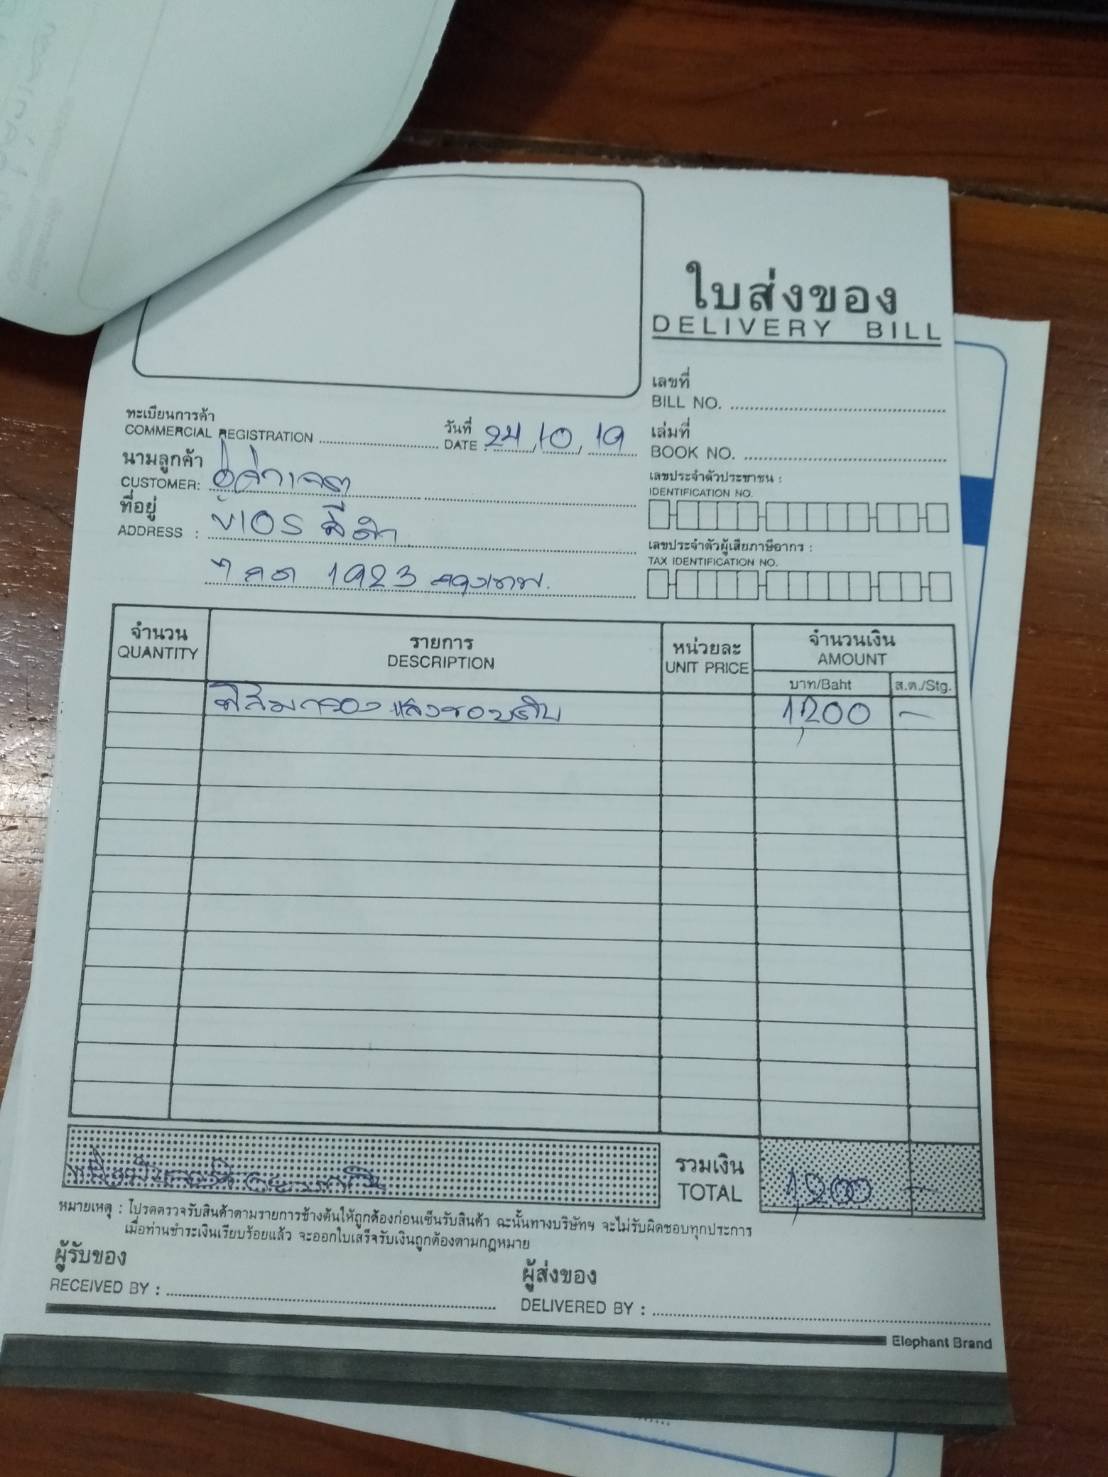 ใบส่งของ
DELIVERY BILL
เลขที่
BILL NO.
ทะเบียนการค้า
COMMERCIAL REGISTRATION
วันที่
DATE 24, 10, 19
เล่มที่
BOOK NO.
นามลูกค้า
CUSTOMER:
ที่อยู่
ADDRESS :
1923 กรุงเทพ.
เลขประจำตัวประชาชน :
IDENTIFICATION NO.
เลขประจำตัวผู้เสียภาษีอากร :
TAX IDENTIFICATION NO.
จำนวน
QUANTITY
รายการ
DESCRIPTION
หน่วยละ
UNIT PRICE
จำนวนเงิน
AMOUNT
บาท/Baht ส.ต./Stg.
ฟิล์มกรองแสงรอบคัน 1,200 -
รวมเงิน
TOTAL 1,200 -
หมายเหตุ : โปรดตรวจรับสินค้าตามรายการข้างต้นให้ถูกต้องก่อนเซ็นรับสินค้า ฉะนั้นทางบริษัทฯ จะไม่รับผิดชอบทุกประการ
เมื่อท่านชำระเงินเรียบร้อยแล้ว จะออกใบเสร็จรับเงินถูกต้องตามกฎหมาย
ผู้รับของ
RECEIVED BY :
ผู้ส่งของ
DELIVERED BY :
Elephant Brand